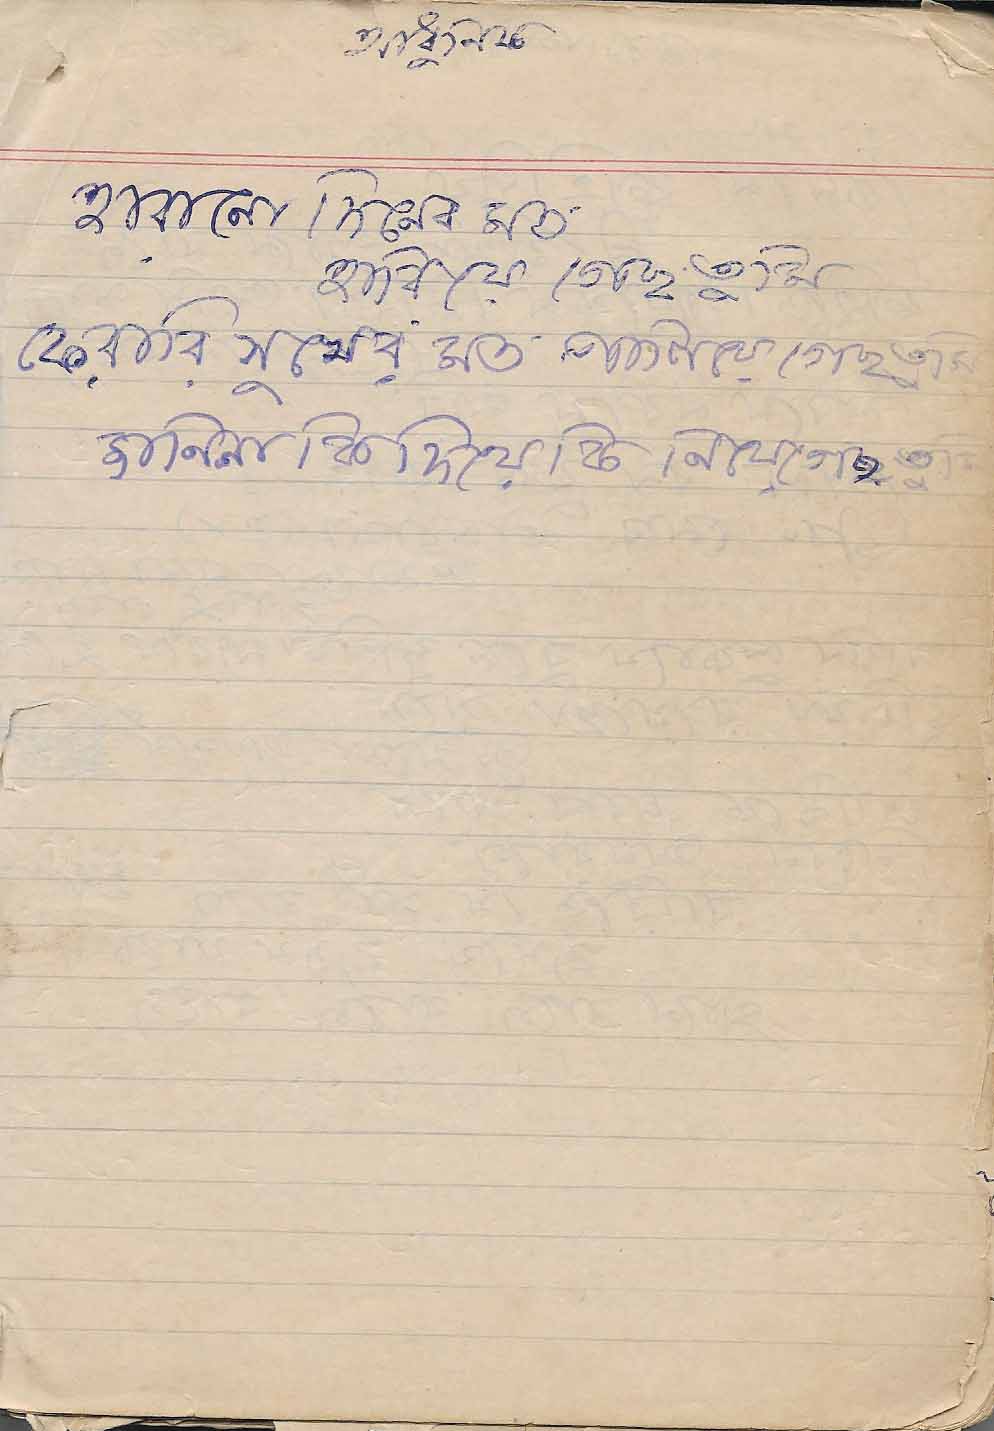 আধুনিক
হারানো দিনের মত
হারিয়ে গেছ তুমি
ফেরারি সুখের মত পালিয়ে গেছ তুমি
জানিনা কি দিয়ে কি নিয়ে গেছ তুমি